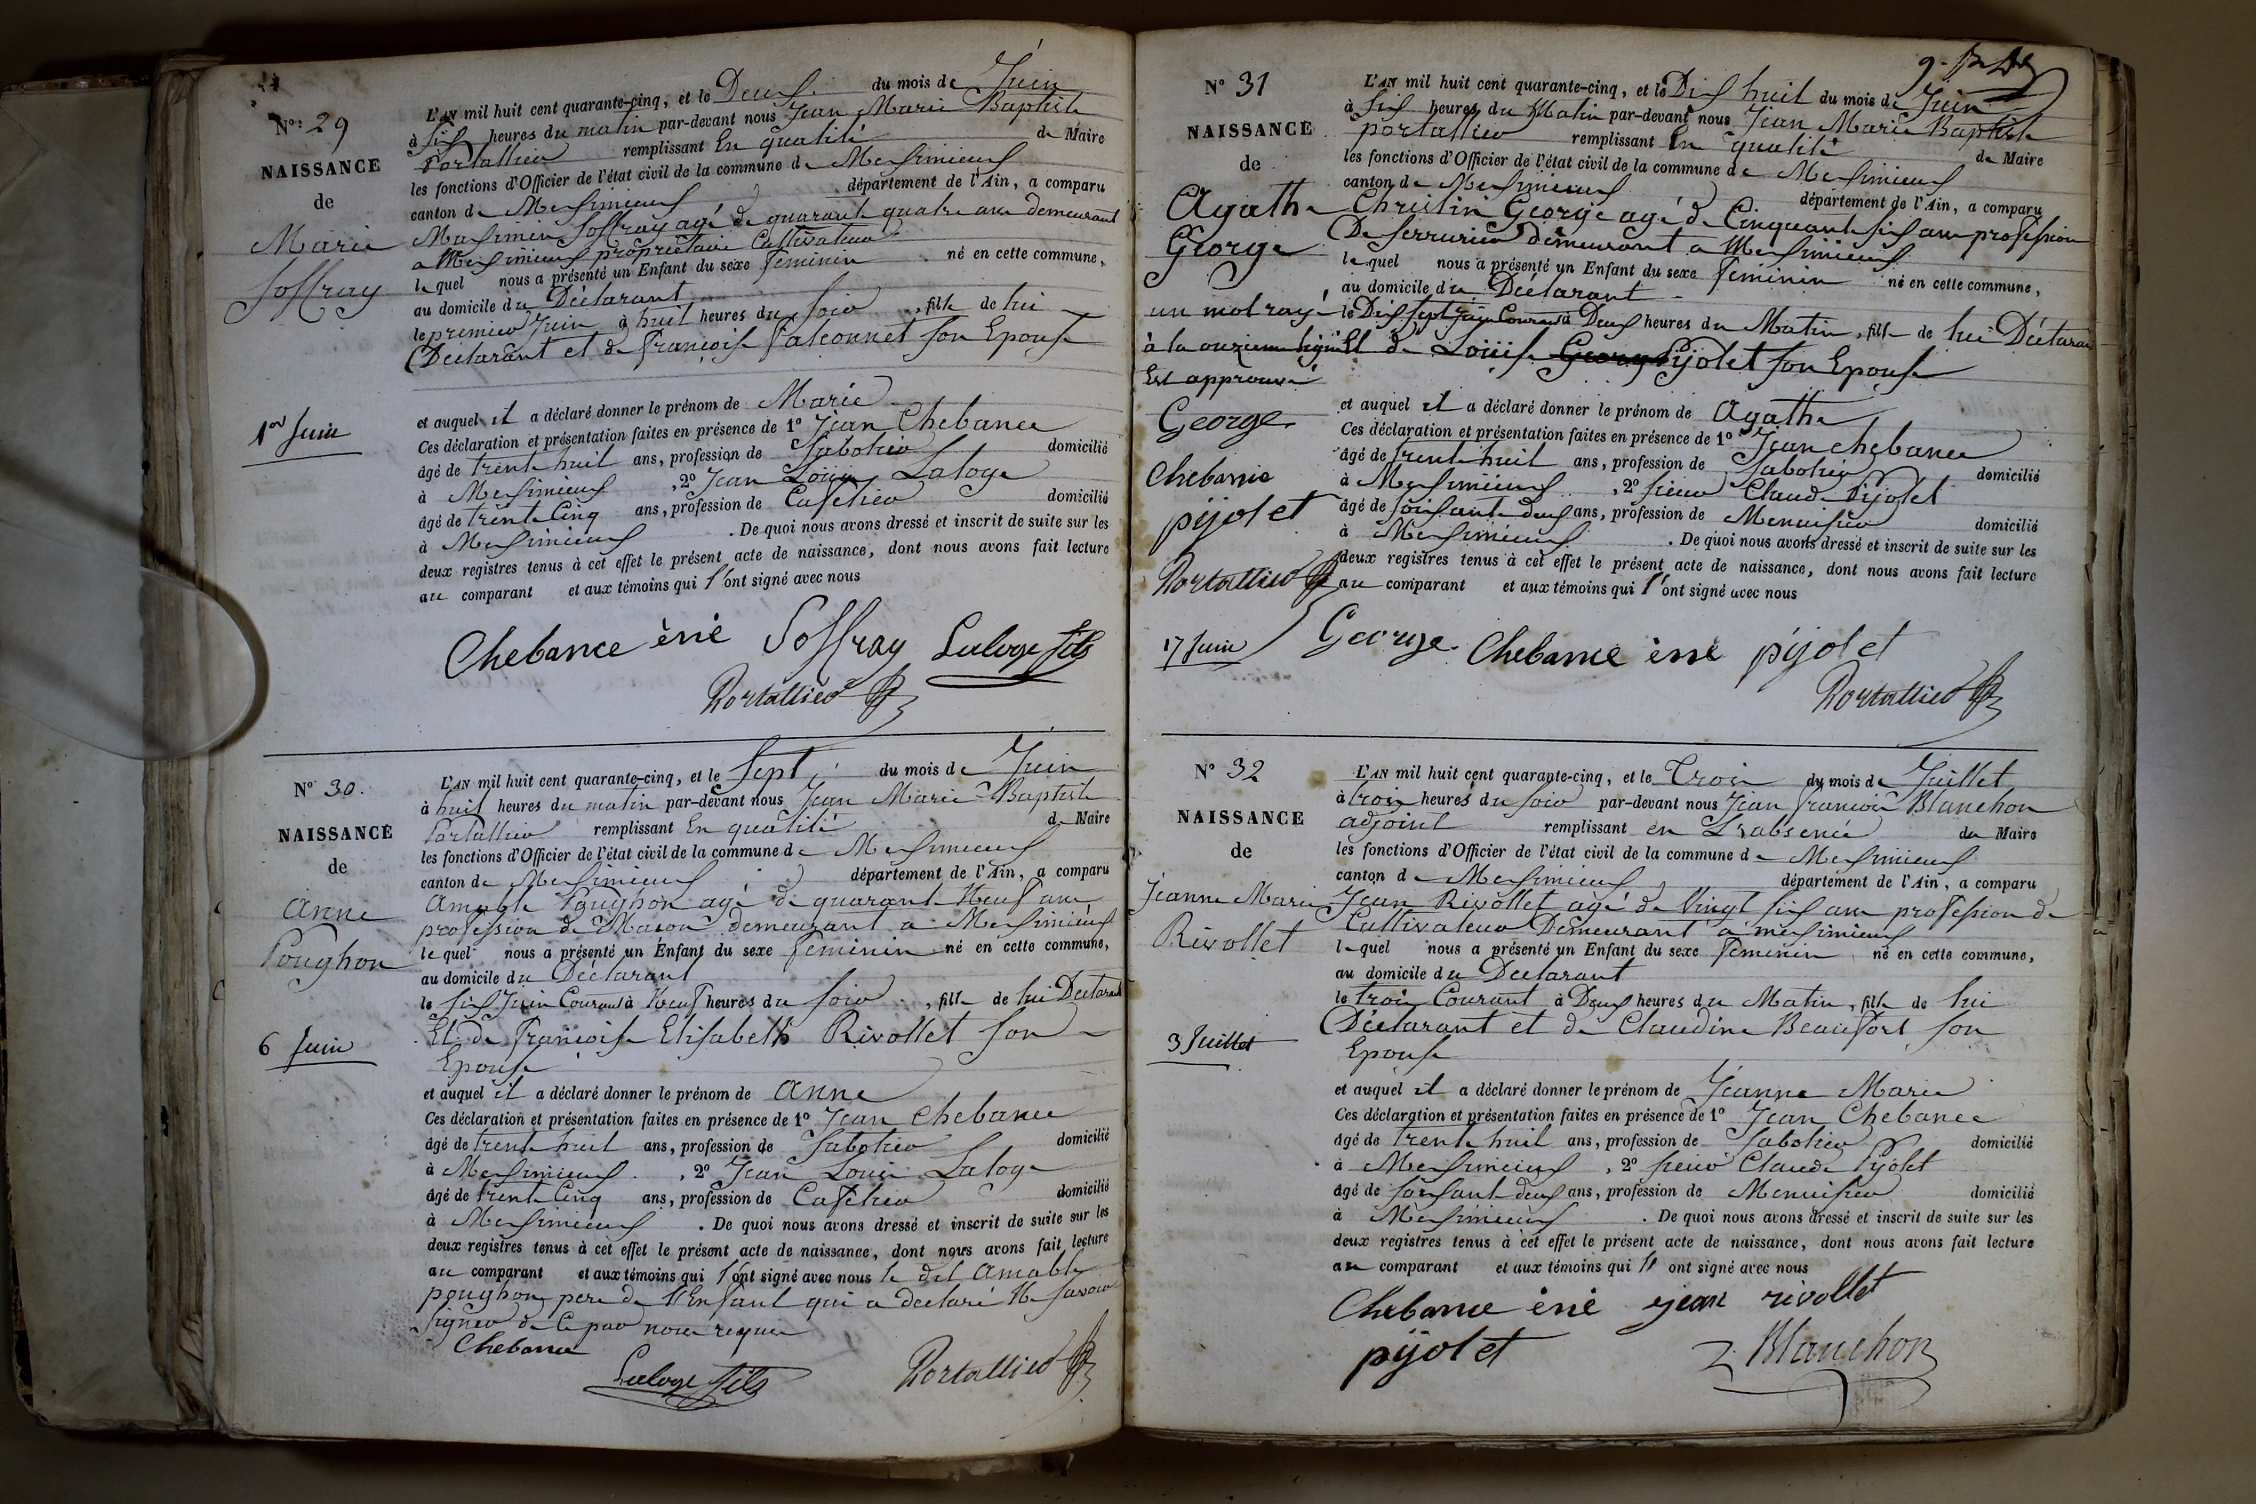 N° 29
NAISSANCE
de
Marie
Soffray
1er Juin
L'AN mil huit cent quarante-cinq, et le Deux du mois de Juin
à six heures du matin par-devant nous Jean Marie Baptiste
Portallier remplissant En qualité de Maire
les fonctions d'Officier de l'état civil de la commune de Meximieux
canton de Meximieux département de l'Ain, a comparu
Maximin Soffray agé de quarante quatre ans demeurant
a Meximieux propriétaire Cultivateur
lequel nous a présenté un Enfant du sexe feminin né en cette commune,
au domicile du Déclarant
le premier Juin à huit heures du soir, fille de lui
Déclarant et de françoise falconnet son Epouse
et auquel il a déclaré donner le prénom de Marie
Ces déclaration et présentation faites en présence de 1° Jean Chebance
âgé de trente huit ans, profession de Sabotier domicilié
à Meximieux, 2° Jean Louis Laloge
âgé de trente Cinq ans, profession de Cafetier domicilié
à Meximieux. De quoi nous avons dressé et inscrit de suite sur les
deux registres tenus à cet effet le présent acte de naissance, dont nous avons fait lecture
au comparant et aux témoins qui l'ont signé avec nous
Chebance Soffray Laloge fils
Portallier
N° 30.
NAISSANCE
de
Anne
Poughon
6 Juin
L'AN mil huit cent quarante-cinq, et le Sept du mois de Juin
à huit heures du matin par-devant nous Jean Marie Baptiste
Portallier remplissant En qualité de Maire
les fonctions d'Officier de l'état civil de la commune de Meximieux
canton de Meximieux département de l'Ain, a comparu
Amable Poughon agé de quarante Neuf ans
profession de Maçon demeurant a Meximieux
lequel nous a présenté un Enfant du sexe feminin né en cette commune,
au domicile du Déclarant
le six Juin Courant à Neuf heures du soir, fille de lui Déclarant
Et de françoise Elisabeth Rivollet son
Epouse
et auquel il a déclaré donner le prénom de Anne
Ces déclaration et présentation faites en présence de 1° Jean Chebance
âgé de trente huit ans, profession de Sabotier domicilié
à Meximieux. , 2° Jean Louis Laloge
âgé de trente Cinq ans, profession de Cafetier domicilié
à Meximieux. De quoi nous avons dressé et inscrit de suite sur les
deux registres tenus à cet effet le présent acte de naissance, dont nous avons fait lecture
au comparant et aux témoins qui l'ont signé avec nous le dit Amable
poughon pere de l'Enfant qui a declaré Ne savoir
signer de ce par nous requis
Chebance
Laloge fils Portallier
N° 31
NAISSANCE
de
Agathe
George
un mot rayé
à la onzieme ligne
Est approuvé
George
Chebance
pijolet
Portallier
17 Juin
L'AN mil huit cent quarante-cinq, et le Dix huit du mois de Juin
à six heures du Matin par-devant nous Jean Marie Baptiste
portallier remplissant En qualité de Maire
les fonctions d'Officier de l'état civil de la commune de Meximieux
canton de Meximieux département de l'Ain, a comparu
Christin George agé de Cinquante six ans profession
De serrurier demeurant a Meximieux
lequel nous a présenté un Enfant du sexe feminin né en cette commune,
au domicile du Déclarant
le Dix sept Juin Courant à Deux heures du Matin, fille de lui Déclarant
Et de Loüise George Pijolet son Epouse
et auquel il a déclaré donner le prénom de Agathe
Ces déclaration et présentation faites en présence de 1° Jean chebance
âgé de trente huit ans, profession de Sabotier domicilié
à Meximieux, 2° sieur Claude Pijolet
âgé de soixante deux ans, profession de Menuisier domicilié
à Meximieux. De quoi nous avons dressé et inscrit de suite sur les
deux registres tenus à cet effet le présent acte de naissance, dont nous avons fait lecture
au comparant et aux témoins qui l'ont signé avec nous
George Chebance pijolet
Portallier
N° 32
NAISSANCE
de
Jeanne Marie
Rivollet
3 Juillet
L'AN mil huit cent quarante-cinq, et le Trois du mois de Juillet
à trois heures du soir par-devant nous Jean françois Blanchon
adjoint remplissant en L'absence du Maire
les fonctions d'Officier de l'état civil de la commune de Meximieux
canton de Meximieux département de l'Ain, a comparu
Jean Rivollet agé de Vingt six ans profession de
Cultivateur Demeurant a meximieux
lequel nous a présenté un Enfant du sexe feminin né en cette commune,
au domicile du Declarant
le trois Courant à Deux heures du Matin, fille de lui
Déclarant et de Claudine Beaufort son
Epouse
et auquel il a déclaré donner le prénom de Jeanne Marie
Ces déclaration et présentation faites en présence de 1° Jean Chebance
âgé de trente huit ans, profession de Sabotier domicilié
à Meximieux, 2° sieur Claude Pijolet
âgé de soixante deux ans, profession de Menuisier domicilié
à Meximieux. De quoi nous avons dressé et inscrit de suite sur les
deux registres tenus à cet effet le présent acte de naissance, dont nous avons fait lecture
au comparant et aux témoins qui ont signé avec nous
Chebance jean rivollet
pijolet Blanchon